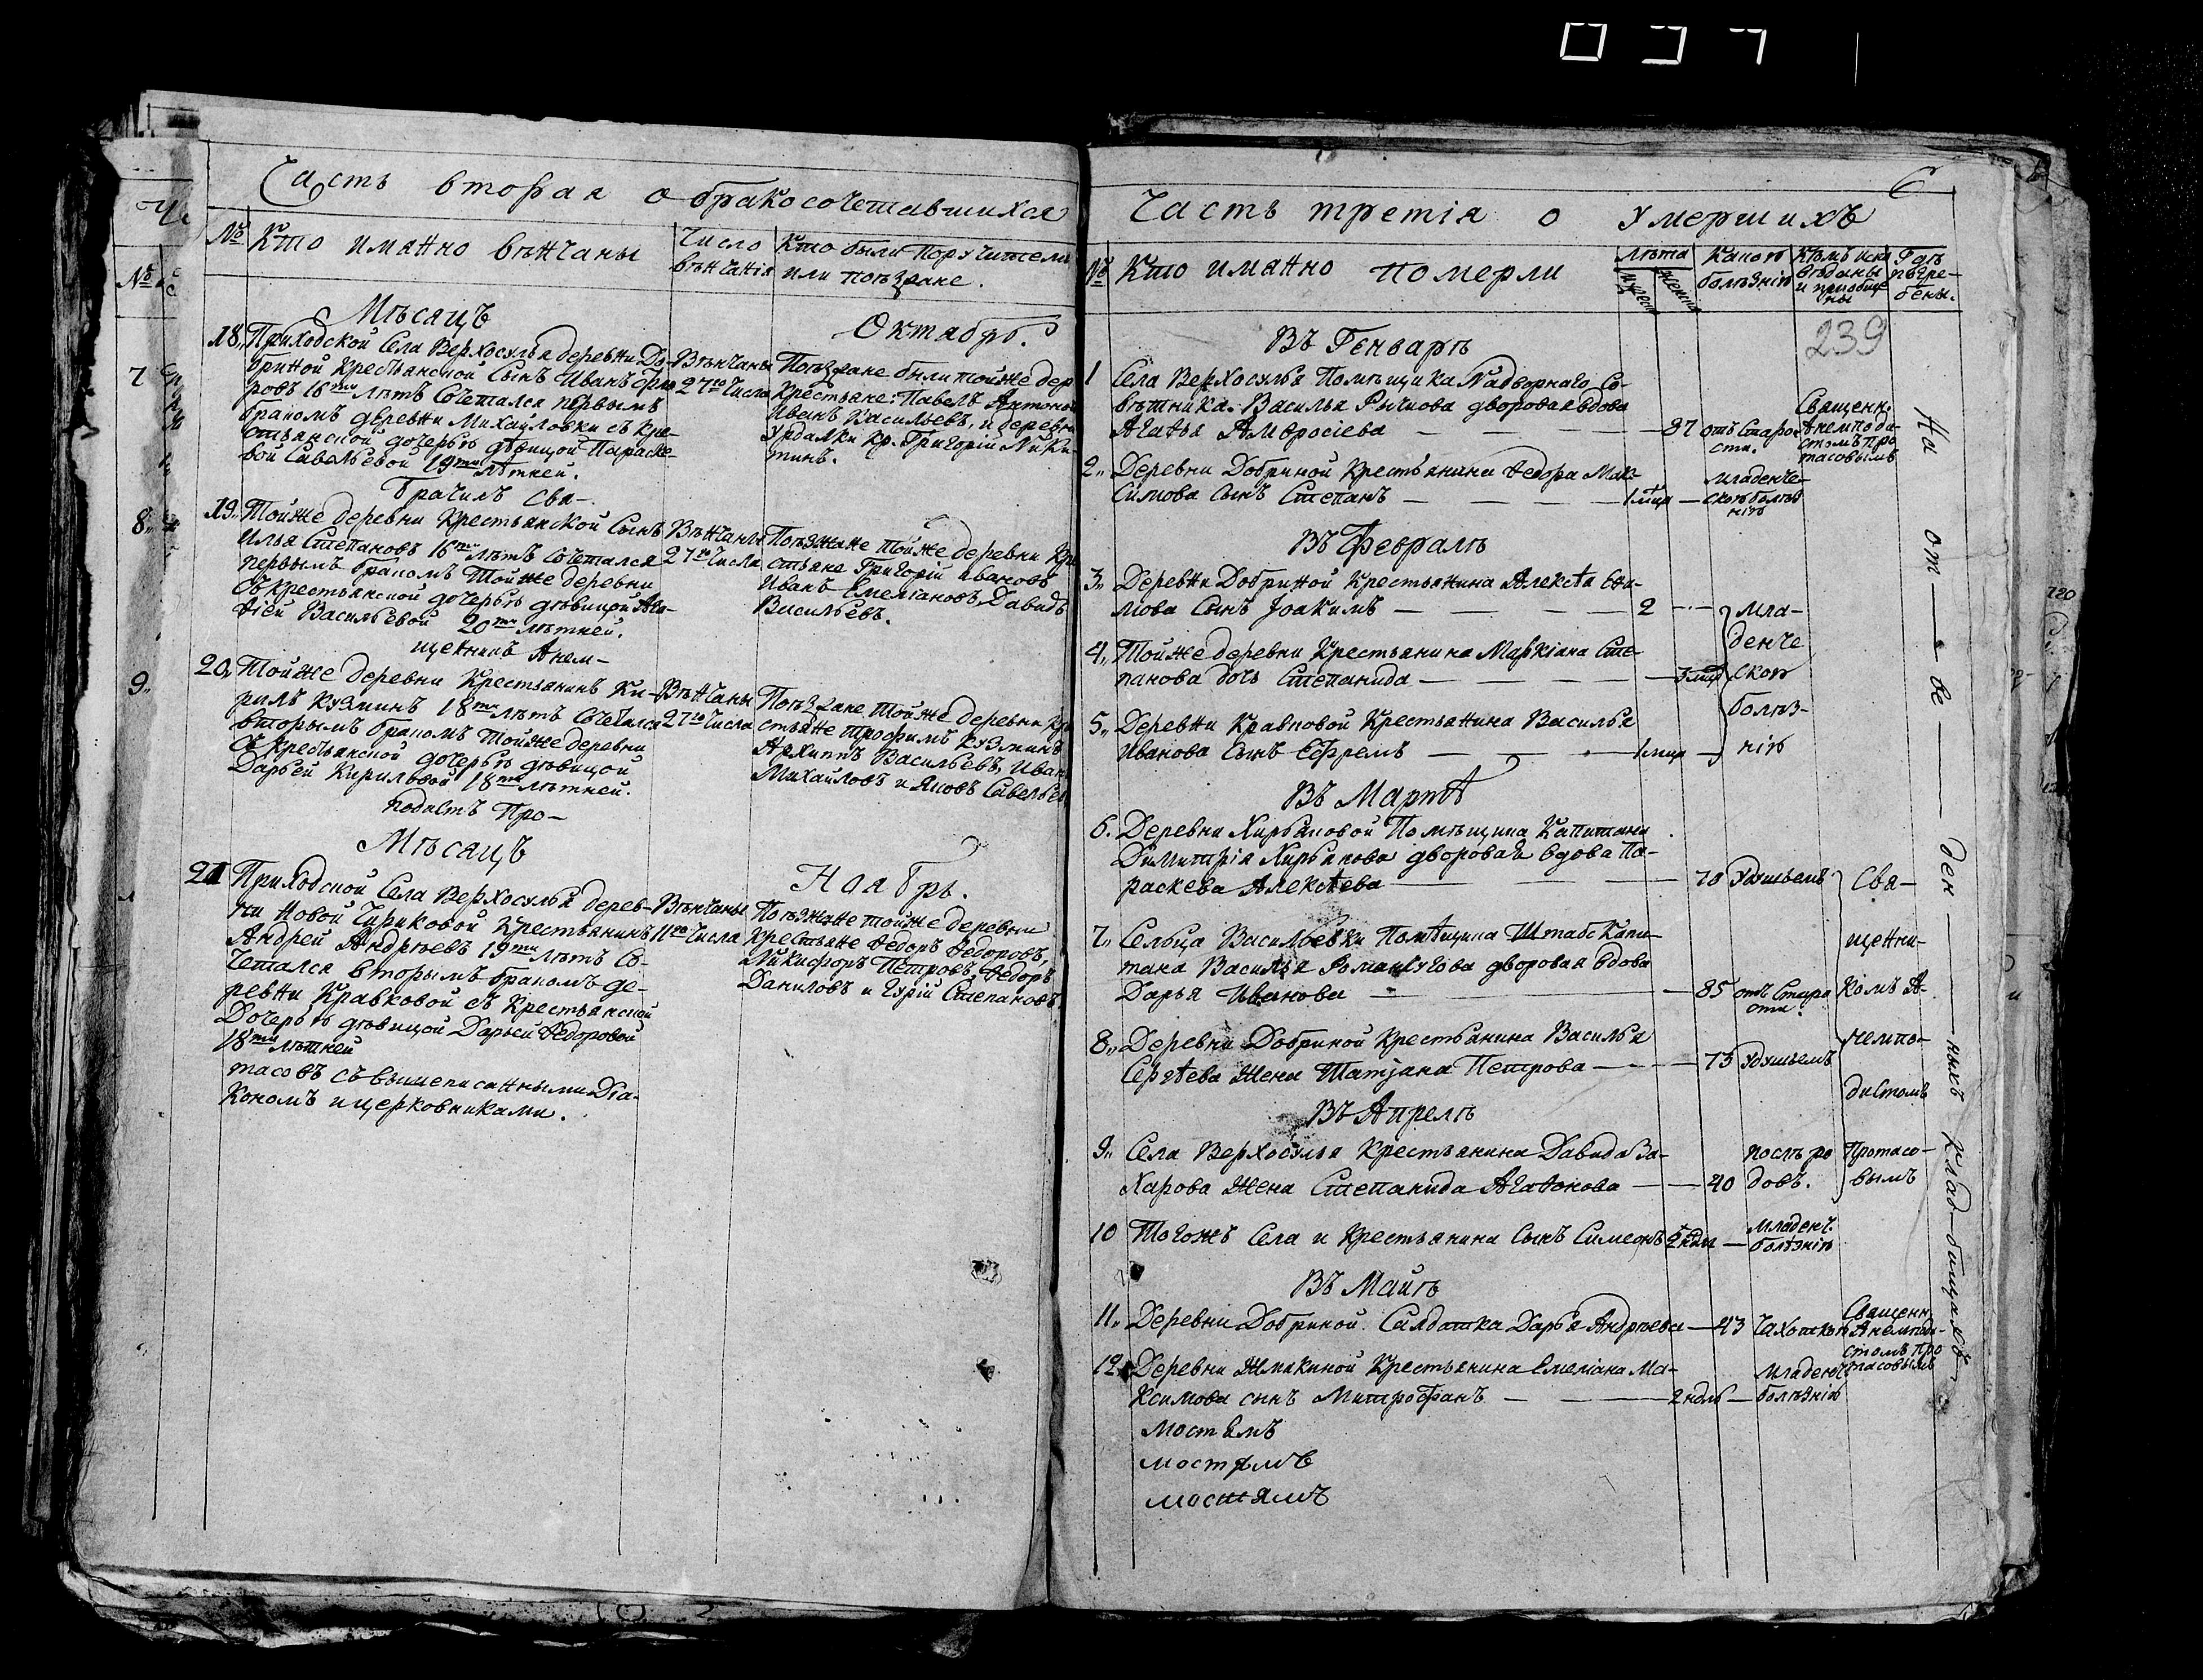 Часть вторая о бракосочетавшихся
№
Кто имянно вѣнчаны
Число
вѣнчанія
Кто были Поручители
или поѣзжане.
Мѣсяцъ
Октябрь.
18. Приходской Села Верхосулья деревни До-
бриной Крестьянской Сынъ Иванъ
ровъ 16ти лѣтъ Сочетался первымъ
бракомъ деревни Михайловки съ кре-
стьянской дочерью дѣвицой Параске-
вой Савельевой 19ти лѣтней.
Вѣнчаны
27го Числа
Поѣзжане были тойже дер
Крестьяне: Павелъ Антоно
Иванъ Васильевъ, и деревн
Урдалки кр. Григорій Ники-
тинъ.
Брачилъ Свя-
19. Тойже деревни Крестьянской Сынъ
Илья Степановъ 16ти лѣтъ Сочетался
первымъ бракомъ Тойже деревни
Съ крестьянской дочерью дѣвицой Ага-
ѳіей Васильевой 20ти лѣтней.
Вѣнчаны
27го Числа
Поѣзжане Тойже деревни Кре
стьяне Григорій Ивановъ
Иванъ Емеліановъ, Давидъ
Васильевъ.
щенникъ Анем-
20. Тойже деревни Крестьянинъ Ки-
рилъ Кузминъ 18ти лѣтъ Сочетался
вторымъ бракомъ Тойже деревни
Съ крестьянской дочерью дѣвицой
Дарьей Кириловой 18ти лѣтней.
Вѣнчаны
27го Числа
Поѣзжане Тойже деревни кре
стьяне Трофимъ Кузминъ
Архиппъ Васильевъ, Иван
Михайловъ и Яковъ Савельев
подистъ Про-
Мѣсяцъ
Ноябрь.
21 Приходской Села Верхосулья дерев-
ни Новой Чириковой Крестьянинъ
Андрей Андрѣевъ 19ти лѣтъ Со-
четался вторымъ бракомъ де-
ревни Кравковой съ Крестьянской
Дочерью дѣвицой Дарьей Ѳедоровой
18ти лѣтней
Вѣнчаны
11го Числа
Поѣзжане тойже деревни
Крестьяне Ѳедоръ Ѳедоровъ,
Никифоръ Петровъ, Ѳедоръ
Даниловъ и Гурій Степановъ
тасовъ съ вышеписанными Діа-
кономъ и церковниками.
Часть третія о умершихъ
№
Кто имянно померли
лѣта
Какою
болѣзнію
Кѣмъ испо
вѣданы
и приобще
ны
Гдѣ
погре-
бены.
239
Въ Генварѣ
1 Села Верхосулья Помѣщика Надворнаго Со-
вѣтника Василья Рычкова дворовая вдова
Агаѳья Амвросіева — 87 отъ Старо
сти.
Священн.
Анемподи-
стомъ Про
тасовымъ
2. Деревни Добриной Крестьянина Ѳедора Мак-
симова сынъ Степанъ — 1 мца —
младенче-
скою болѣз
нію
Въ Февралѣ
3. Деревни Добриной Крестьянина Алексѣя
Сынъ Іоакимъ — 2
4. Тойже деревни Крестьянина Маркіана Сте-
панова дочь Степанида — 3 мца
5. Деревни Кравковой Крестьянина Василья
Иванова Сынъ Ефремъ — 1 мца
Мла-
денче
скою
болѣз-
нію
Въ Мартѣ
6. Деревни Кирьяковой Помѣщика Капитана
Димитрія Кирьякова дворовая вдова Па-
раскева Алексѣева — 70 Удушьемъ
7. Сельца Васильевки Помѣщика Штабс Капи-
тана Василья Романчукова дворовая вдова
Дарья Иванова — 85 отъ Старо
сти.
8. Деревни Добриной Крестьянина Василья
Сергѣева Жена Татіана Петрова — 73 Удушьемъ
Въ Апрелѣ
9. Села Верхосулья Крестьянина Давида За-
харова Жена Степанида Агаѳонова — 40
послѣ ро
довъ.
Свя-
щенни-
комъ А-
немпо-
дистомъ
Протасо-
вымъ
10 Тогожъ Села и Крестьянина Сынъ Симеонъ
Младенч.
болѣзнію
Въ Маiѣ
11. Деревни Добриной Салдатка Дарья Андрѣева — 43 Чахоткою
Священн.
Анемподи-
стомъ Про
тасовымъ
12. Деревни Жмакиной Крестьянина Емеліана Ма-
ксимова сынъ Митрофанъ —
Младенч.
болѣзнію
мостьямъ
мостямъ
мостямъ
На от-ве-ден-ныхъ клад-бищахъ